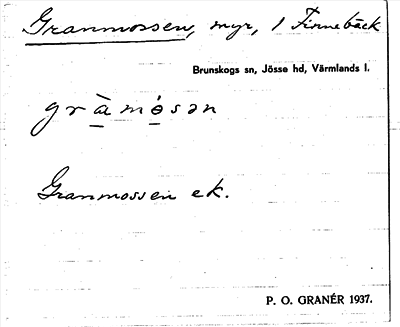 Granmossen, myr, 1 Finnebäck
Brunskogs sn, Jösse hd, Värmlands l.
gràmósən
Granmossen ek.
P. O. GRANÉR 1937.